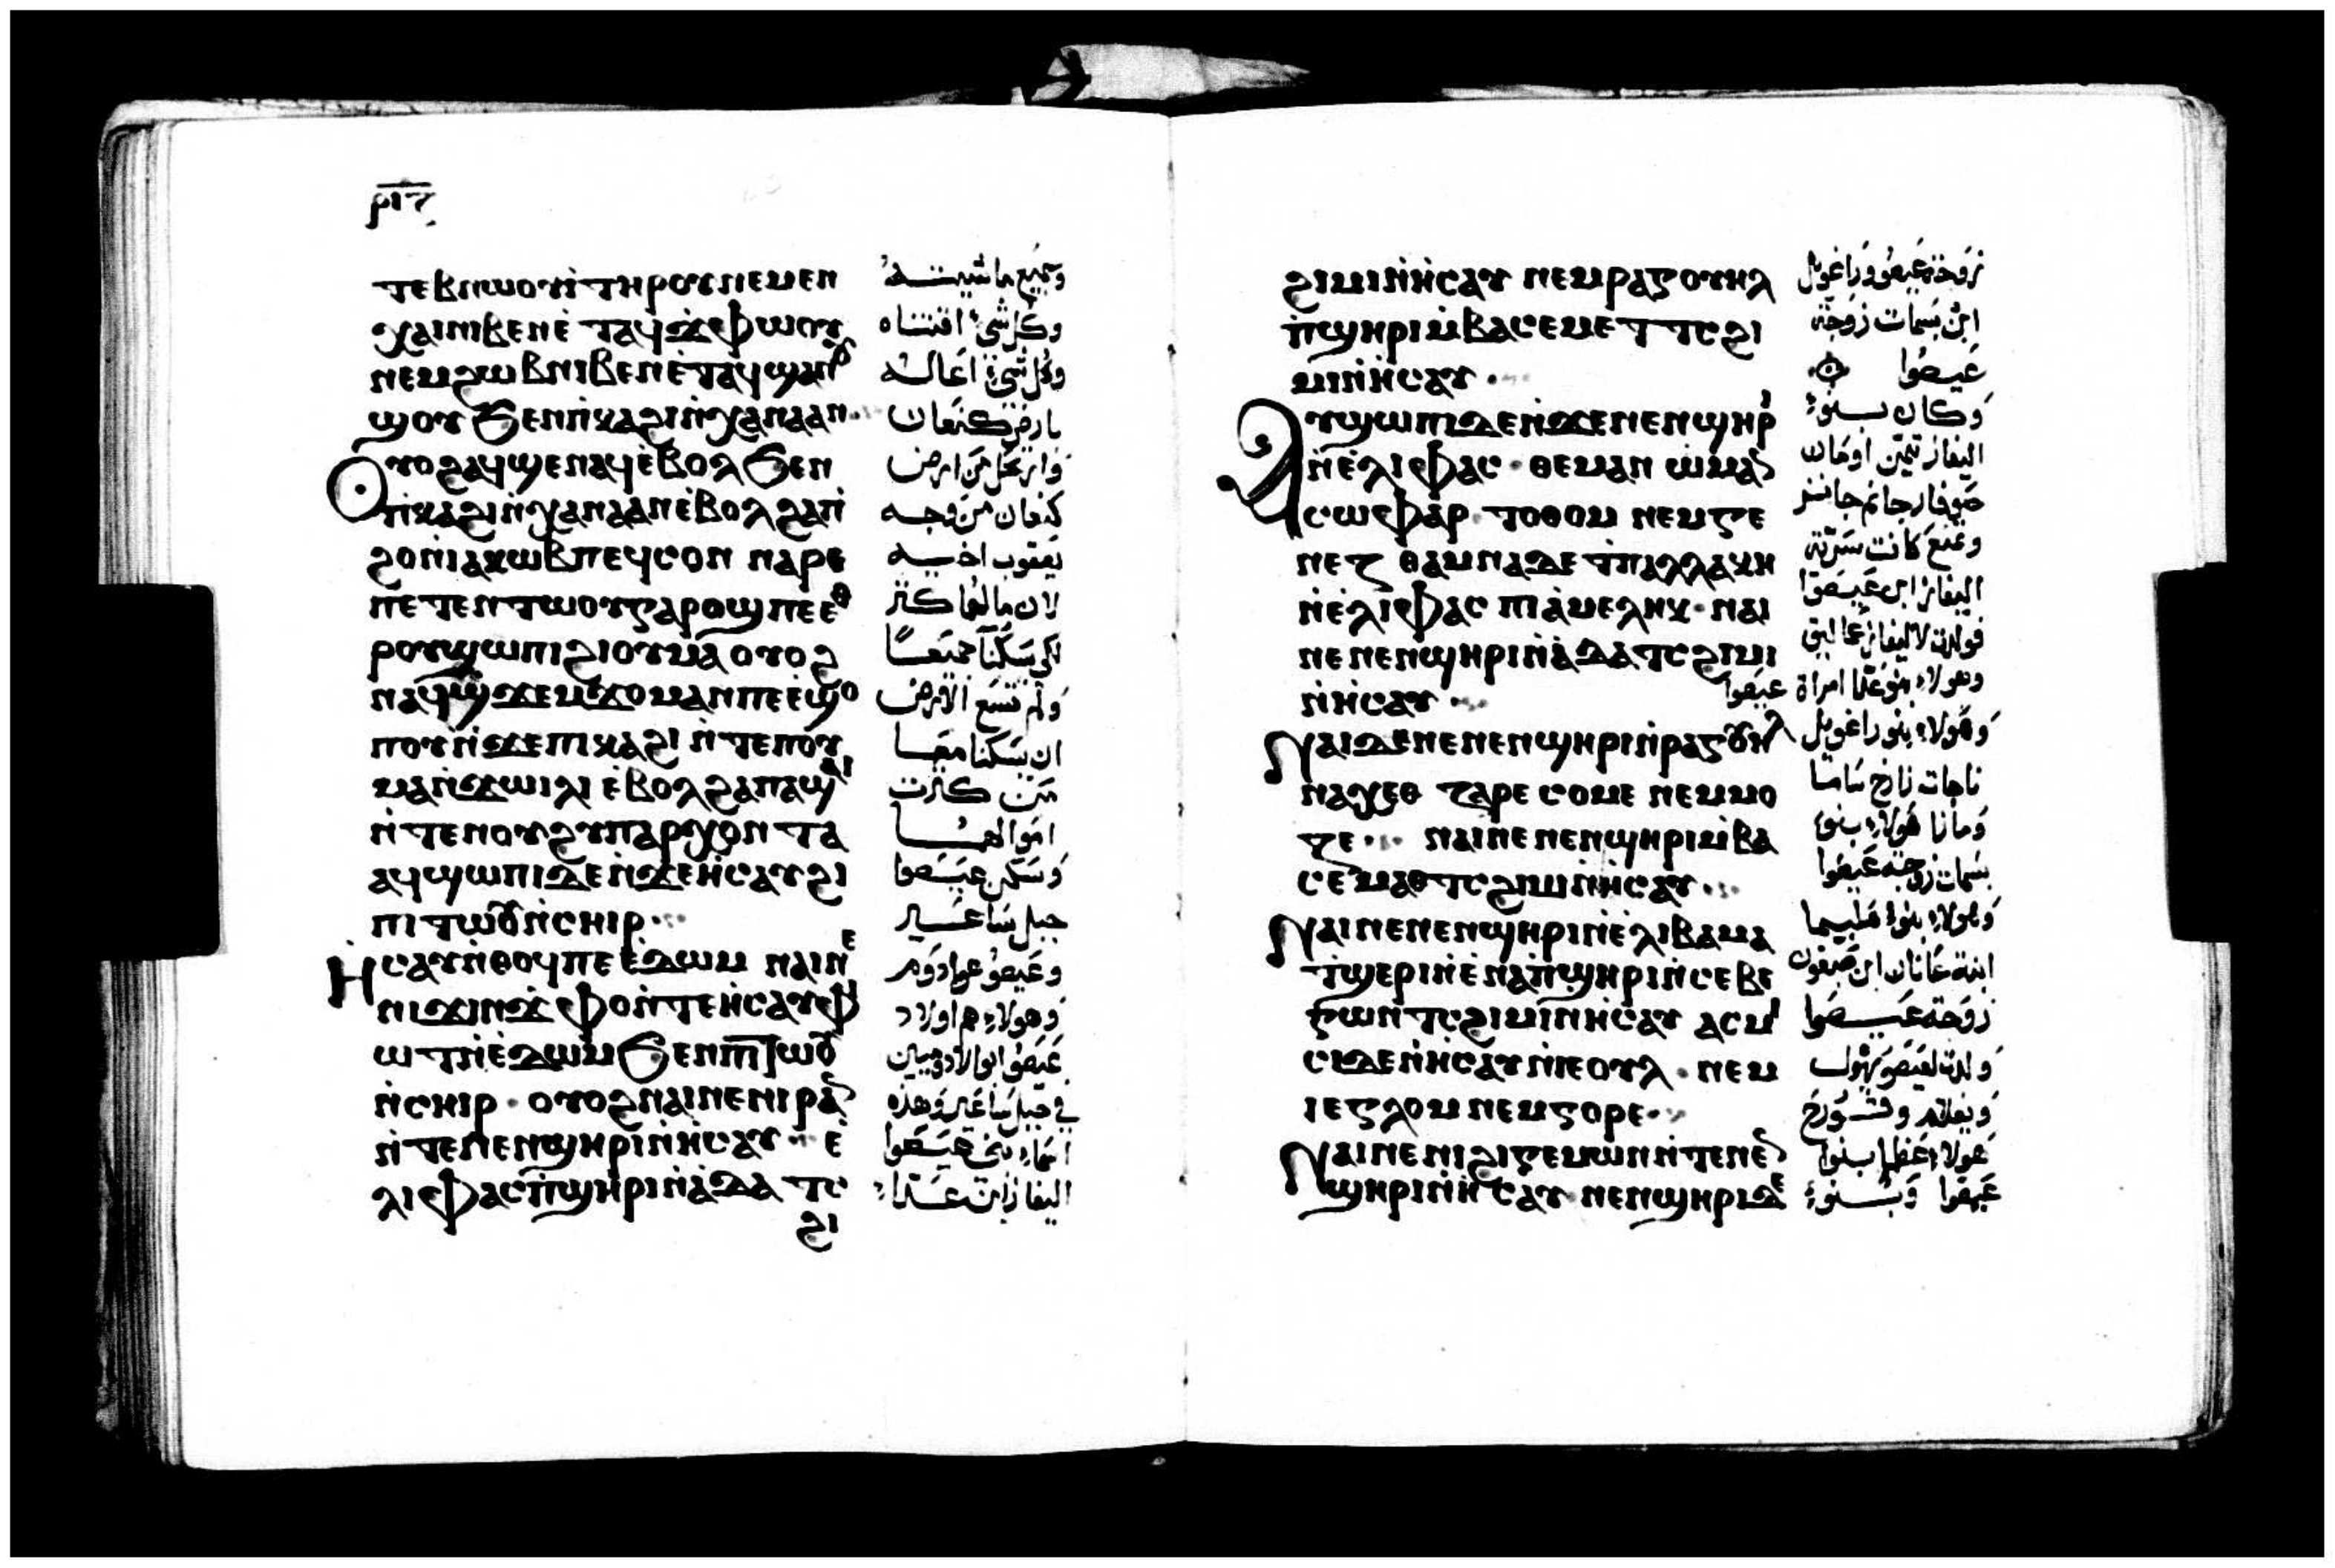 ⲣⲓⲍ
ⲧⲉⲃⲛⲱⲟⲩⲓ̀ ⲧⲏⲣⲟⲩ ⲛⲉⲙⲉⲛ
ⲭⲁⲓ ⲛⲓⲃⲉⲛ ⲉ̀ⲧⲁϥϫ̀ⲫⲱⲟⲩ
ⲛⲉⲙϩⲱⲃ ⲛⲓⲃⲉⲛ ⲉ̀ⲧⲁϥϣⲁⲛ
ϣⲟⲩ ϧⲉⲛ ⲡⲕⲁϩⲓ ⲛ̀ⲭⲁⲛⲁⲁⲛ
ⲟⲩⲟϩ ⲁϥϣⲉⲛⲁϥ ⲉ̀ⲃⲟⲗ ϧⲉⲛ
ⲡ̀ⲕⲁϩⲓ ⲛ̀ⲭⲁⲛⲁⲁⲛ ⲉ̀ⲃⲟⲗ ϩⲁ ⲡ̀
ϩⲟ ⲛ̀ⲓⲁⲕⲱⲃ ⲡⲉϥⲥⲟⲛ ⲛⲁⲣⲉ
ⲡⲉⲧⲉⲛⲧⲱⲟⲩ ⲅⲁⲣ ⲟϣ ⲡⲉ ⲉⲑ
ⲣⲟⲩϣⲱⲡⲓ ϩⲓ ⲟⲩⲙⲁ ⲟⲩⲟϩ
ⲛⲁϥϣϫⲉⲙϫⲟⲙ ⲁⲛ ⲡⲉ ⲉ̀ϣⲟ
ⲡⲟⲩ ⲛ̀ϫⲉ ⲡⲓⲕⲁϩⲓ ⲛ̀ⲧⲉ ⲡⲟⲩ
ⲙⲁⲛ̀ϫⲱⲓⲗⲓ ⲉ̀ⲃⲟⲗ ϩⲁ ⲡⲁϣⲁⲓ
ⲛ̀ⲧⲉ ⲛⲟⲩϩⲩⲡⲁⲣⲭⲟⲛⲧⲁ
ⲁϥϣⲱⲡⲓ ⲇⲉ ⲛ̀ϫⲉ ⲏ̀ⲥⲁⲩ ϩⲓ
ⲡⲓⲧⲱⲟⲩ ⲛ̀ⲥⲏⲓⲣ
ⲏ̀ⲥⲁⲩ ⲛ̀ⲑⲟϥ ⲡⲉ ⲉ̀ⲇⲱⲙ ⲛⲁⲓ ⲛⲉ
ⲛⲓϫⲓⲛϫ̀ⲫⲟ ⲛ̀ⲧⲉ ⲏ̀ⲥⲁⲩ ⲫⲓ
ⲱⲧ ⲛ̀ⲉ̀ⲇⲱⲙ ϧⲉⲛ ⲡⲓⲧⲱⲟⲩ
ⲛ̀ⲥⲏⲓⲣ ⲟⲩⲟϩ ⲛⲁⲓ ⲛⲉ ⲛⲓⲣⲁⲛ
ⲛ̀ⲧⲉ ⲛⲉⲛϣⲏⲣⲓ ⲛ̀ⲏ̀ⲥⲁⲩ ⲉ̀
ⲗⲓⲫⲁⲥ ⲡ̀ϣⲏⲣⲓ ⲛ̀ⲁ̀ⲇⲁ ⲧⲥ
ϩⲓ
وجميع ماشيته
وكل شئ اقتناه
وكل شئ اعاله
بارض كنعان
وارتحل من ارض
كنعان من وجه
يعقوب اخيه
لان مالهما كثر
لكي يسكنا جميعا
ولم تسع الارض
ان يسكنا معا
من كثرت
اموالهما
وسكن عيصوا
جبل ساعير
وعيصو هو ادوم
وهولاء هم اولاد
عيصو ابو الادوميين
في جبل ساعير وهذه
اسماء بني عيصوا
اليفاز ابن عدا
ϩⲓⲙⲓ ⲛ̀ⲏ̀ⲥⲁⲩ ⲛⲉⲙ ⲣⲁⲅⲟⲩⲏⲗ
ⲡ̀ϣⲏⲣⲓ ⲙ̀ⲃⲁⲥⲉⲙⲉⲧ ⲧⲥϩⲓ
ⲙⲓ ⲛ̀ⲏ̀ⲥⲁⲩ
ⲁⲩϣⲱⲡⲓ ⲇⲉ ⲛ̀ϫⲉ ⲛⲉⲛϣⲏⲣⲓ
ⲛ̀ⲉ̀ⲗⲓⲫⲁⲥ ⲑⲉⲙⲁⲛ ⲱ̀ⲙⲁⲛ
ⲥⲱⲫⲁⲣ ⲧⲟⲑⲟⲙ ⲛⲉⲙ ⲅⲉ
ⲛⲉⲍ ⲑⲁⲙⲛⲁ ⲇⲉ ϯⲡⲁⲗⲗⲁⲕⲏ
ⲛ̀ⲉ̀ⲗⲓⲫⲁⲥ ⲡⲓⲁ̀ⲙⲉⲗⲏⲕ ⲛⲁⲓ
ⲛⲉ ⲛⲉⲛϣⲏⲣⲓ ⲛ̀ⲁ̀ⲇⲁ ⲧⲥϩⲓⲙⲓ
ⲛ̀ⲏ̀ⲥⲁⲩ
ⲛⲁⲓ ⲇⲉ ⲛⲉ ⲛⲉⲛϣⲏⲣⲓ ⲛ̀ⲣⲁⲅⲟⲩⲏⲗ
ⲛⲁⲭⲉⲑ ⲍⲁⲣⲉ ⲥⲟⲙⲉ ⲛⲉⲙ ⲙⲟ
ⲍⲉ ⲛⲁⲓ ⲛⲉ ⲛⲉⲛϣⲏⲣⲓ ⲙ̀ⲃⲁ
ⲥⲉⲙⲁⲑ ⲧⲥϩⲓⲙⲓ ⲛ̀ⲏ̀ⲥⲁⲩ
ⲛⲁⲓ ⲛⲉ ⲛⲉⲛϣⲏⲣⲓ ⲛ̀ⲉ̀ⲗⲓⲃⲁⲙⲁ
ⲧ̀ϣⲉⲣⲓ ⲛ̀ⲉ̀ⲛⲁ ⲡ̀ϣⲏⲣⲓ ⲛ̀ⲥⲉⲃⲉ
ⲅⲱⲛ ⲧⲥϩⲓⲙⲓ ⲛ̀ⲏ̀ⲥⲁⲩ ⲁⲥⲙⲓ
ⲥⲓ ⲇⲉ ⲛ̀ⲏ̀ⲥⲁⲩ ⲛ̀ⲓⲉⲟⲩⲗ ⲛⲉⲙ
ⲓⲉⲅⲗⲟⲙ ⲛⲉⲙ ⲅⲟⲣⲉ
ⲛⲁⲓ ⲛⲉ ⲛⲓϩⲓⲅⲉⲙⲱⲛ ⲛ̀ⲧⲉ ⲛⲉⲛ
ϣⲏⲣⲓ ⲛ̀ⲏ̀ⲥⲁⲩ ⲛⲉⲛϣⲏⲣⲓ ⲇⲉ
زوجة عيصو وراغويل
ابن بسمات زوجة
عيصوا
وكان بنو
اليفاز تيمن اومان
صوفار جاثم جانز
وتمنع كانت سرية
اليفاز ابن عيصوا
فولدت لاليفاز عماليق
وهولاء بنو عدا امراة عيصوا
وهولاء بنو راغويل
ناحات زارح ساما
ومازا هولاء بنو
بسمات زوجة عيصوا
وهولاء بنوا هليبما
ابنة عانان ابن صبغون
زوجة عيصوا
ولدت لعيصو يهول
ويغلام وقورح
هولاء عظما بنوا
عيصوا وبنو